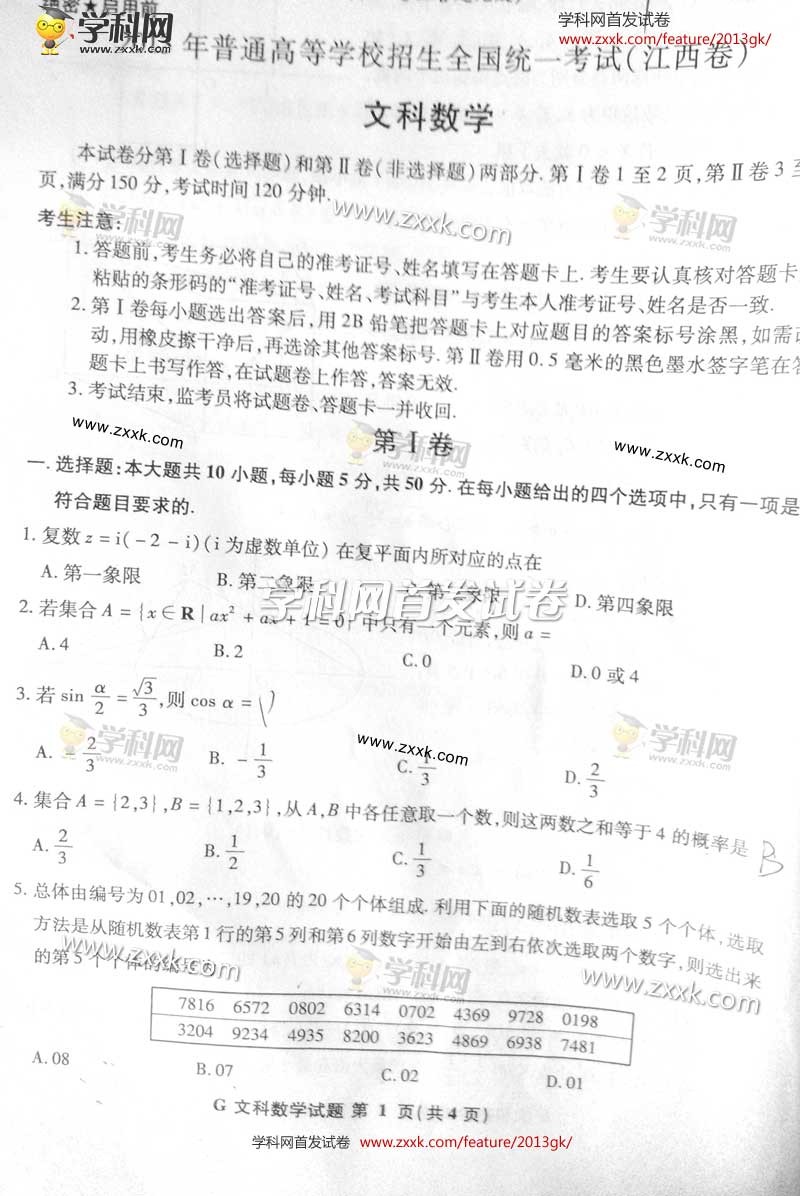 学科网首发试卷
www.zxxk.com/feature/2013gk/
绝密★启用前
学科网
zxxk.com
年普通高等学校招生全国统一考试(江西卷)
文科数学
本试卷分第Ⅰ卷(选择题)和第Ⅱ卷(非选择题)两部分.第Ⅰ卷1至2页,第Ⅱ卷3至
页,满分150分,考试时间120分钟.
www.zxxk.com
学科网
zxxk.com
学科网
zxxk.com
考生注意:
1.答题前,考生务必将自己的准考证号、姓名填写在答题卡上.考生要认真核对答题卡
粘贴的条形码的“准考证号、姓名、考试科目”与考生本人准考证号、姓名是否一致.
2.第Ⅰ卷每小题选出答案后,用2B铅笔把答题卡上对应题目的答案标号涂黑,如需改
动,用橡皮擦干净后,再选涂其他答案标号.第Ⅱ卷用0.5毫米的黑色墨水签字笔在答
题卡上书写作答,在试题卷上作答,答案无效.
3.考试结束,监考员将试题卷、答题卡一并收回.
www.zxxk.com
学科网
zxxk.com
www.zxxk.com
第Ⅰ卷
一.选择题:本大题共10小题,每小题5分,共50分.在每小题给出的四个选项中,只有一项是
符合题目要求的.
1.复数z=i(-2-i)(i为虚数单位)在复平面内所对应的点在
A.第一象限 B.第二象限 第三象限 D.第四象限
学科网首发试卷
2.若集合A={x∈R|ax²+ax+1=0}中只有一个元素,则a=
A.4 B.2 C.0 D.0或4
3.若sin α/2=√3/3,则cos α=
学科网
zxxk.com
www.zxxk.com
学科网
zxxk.com
A. -2/3 B. -1/3 C. 1/3 D. 2/3
4.集合A={2,3},B={1,2,3},从A,B中各任意取一个数,则这两数之和等于4的概率是 B
A. 2/3 B. 1/2 C. 1/3 D. 1/6
5.总体由编号为01,02,…,19,20的20个个体组成.利用下面的随机数表选取5个个体,选取
方法是从随机数表第1行的第5列和第6列数字开始由左到右依次选取两个数字,则选出来
的第5个个体的编号为
www.zxxk.com
学科网
zxxk.com
www.zxxk.com
7816 6572 0802 6314 0702 4369 9728 0198
3204 9234 4935 8200 3623 4869 6938 7481
A.08 B.07 C.02 D.01
G 文科数学试题 第1页(共4页)
学科网首发试卷 www.zxxk.com/feature/2013gk/